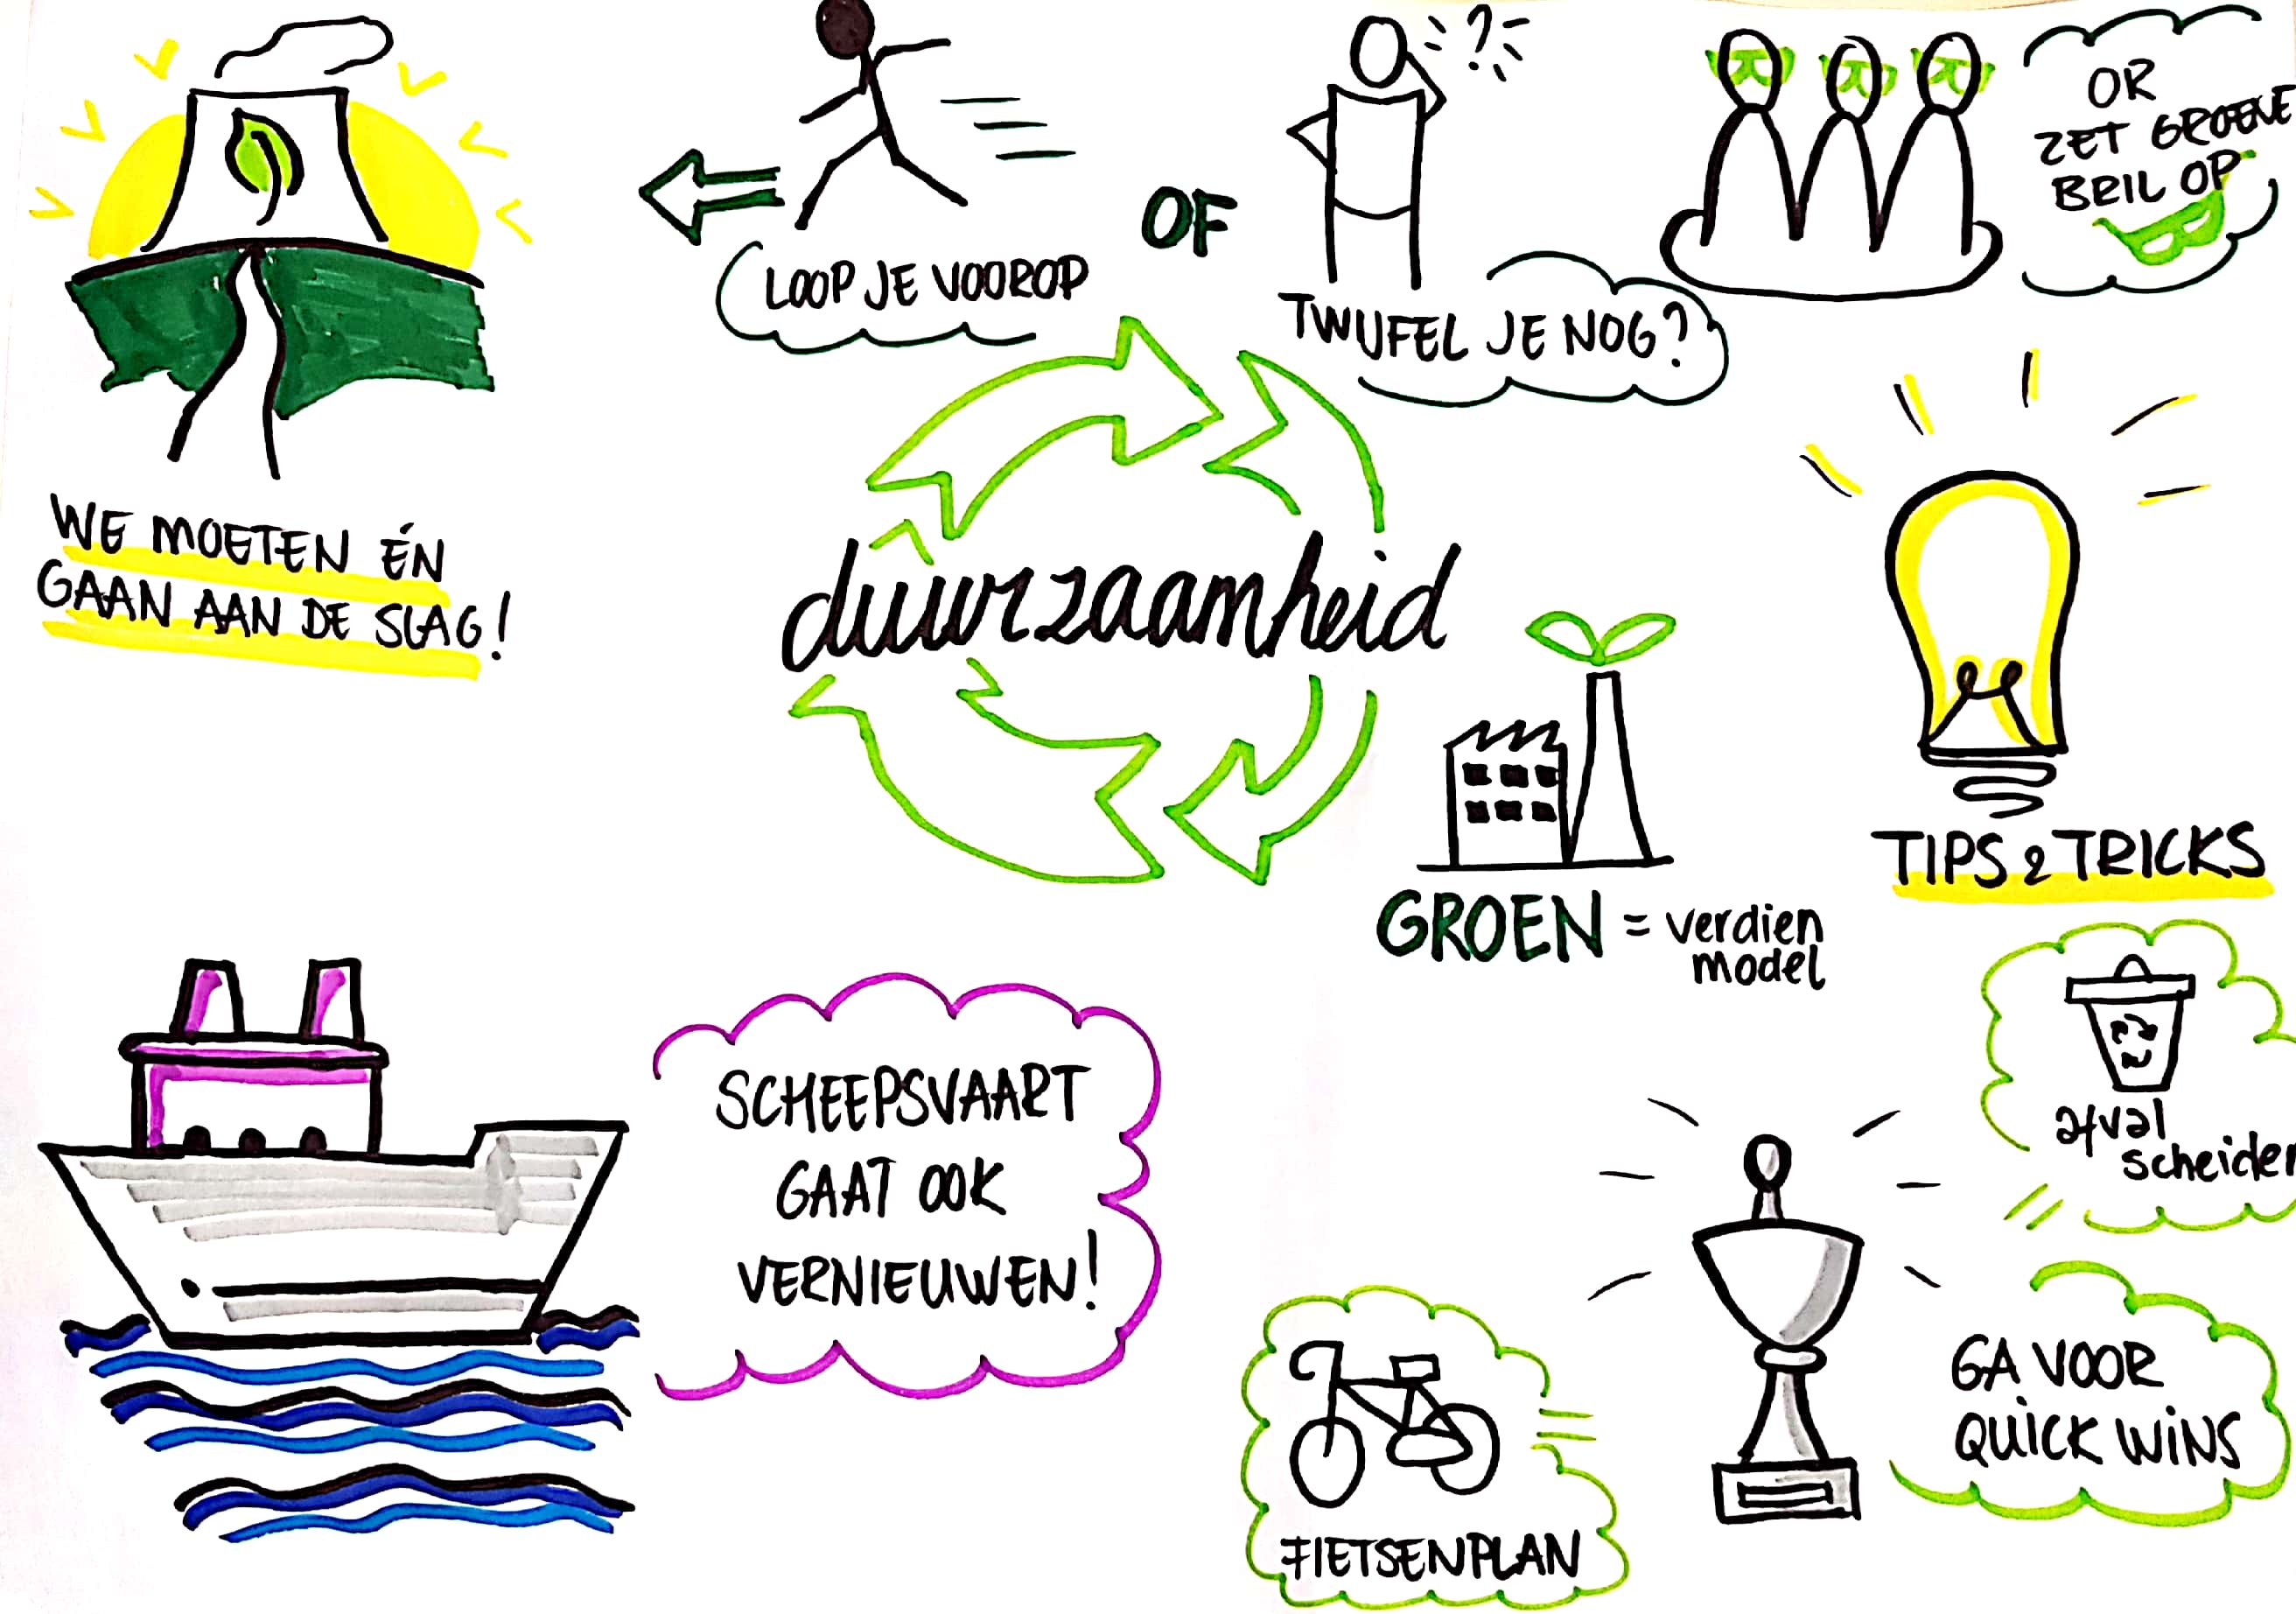 LOOP JE VOOROP
OF
?
TWIJFEL JE NOG?
OR
ZET GROENE
BRIL OP
WE MOETEN ÉN
GAAN AAN DE SLAG!
duurzaamheid
GROEN = verdien
model
TIPS & TRICKS
afval
scheiden
SCHEEPSVAART
GAAT OOK
VERNIEUWEN!
FIETSENPLAN
GA VOOR
QUICK WINS